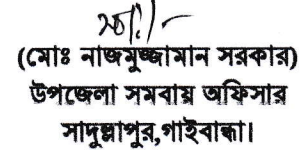 স্বা:/-
(মোঃ নাজমুজ্জামান সরকার)
উপজেলা সমবায় অফিসার
সাদুল্লাপুর,গাইবান্ধা।